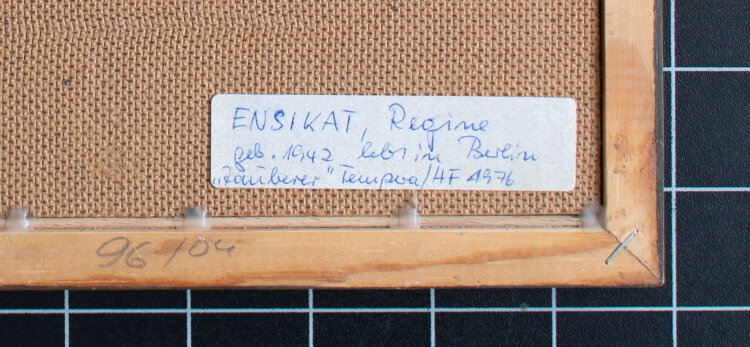 ENSIKAT, Regine
geb. 1942 lebt in Berlin
„Zauberer" Tempera/HF 1976
96-104